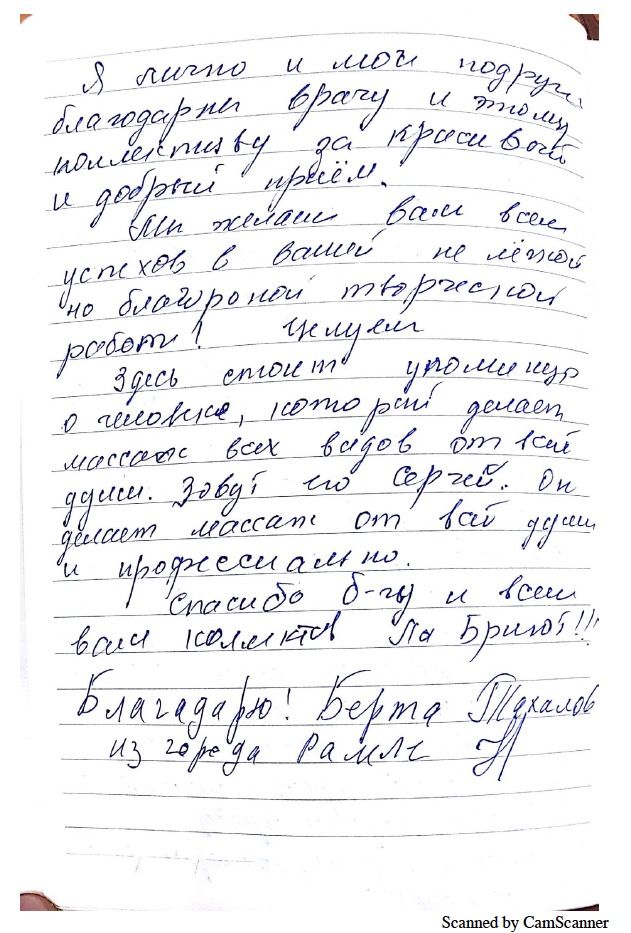 Я лично и мои подруги
благодарны врачу и этому
коллективу за красивый
и добрый приём.
Мы желаем вам всем
успехов в вашей не лёгкой
но благороной творческой
работы! Целуем
Здесь стоит упоминуть
о человеке, который делает
массаж всех видов от всей
души. Зовут его Сергей. Он
делает массаж от всей души
и профессиально.
Спасибо б-гу и всем
вам коллектив Ла Бриют!!!
Благадарю! Берта Тахалов
из города Рамле
Scanned by CamScanner